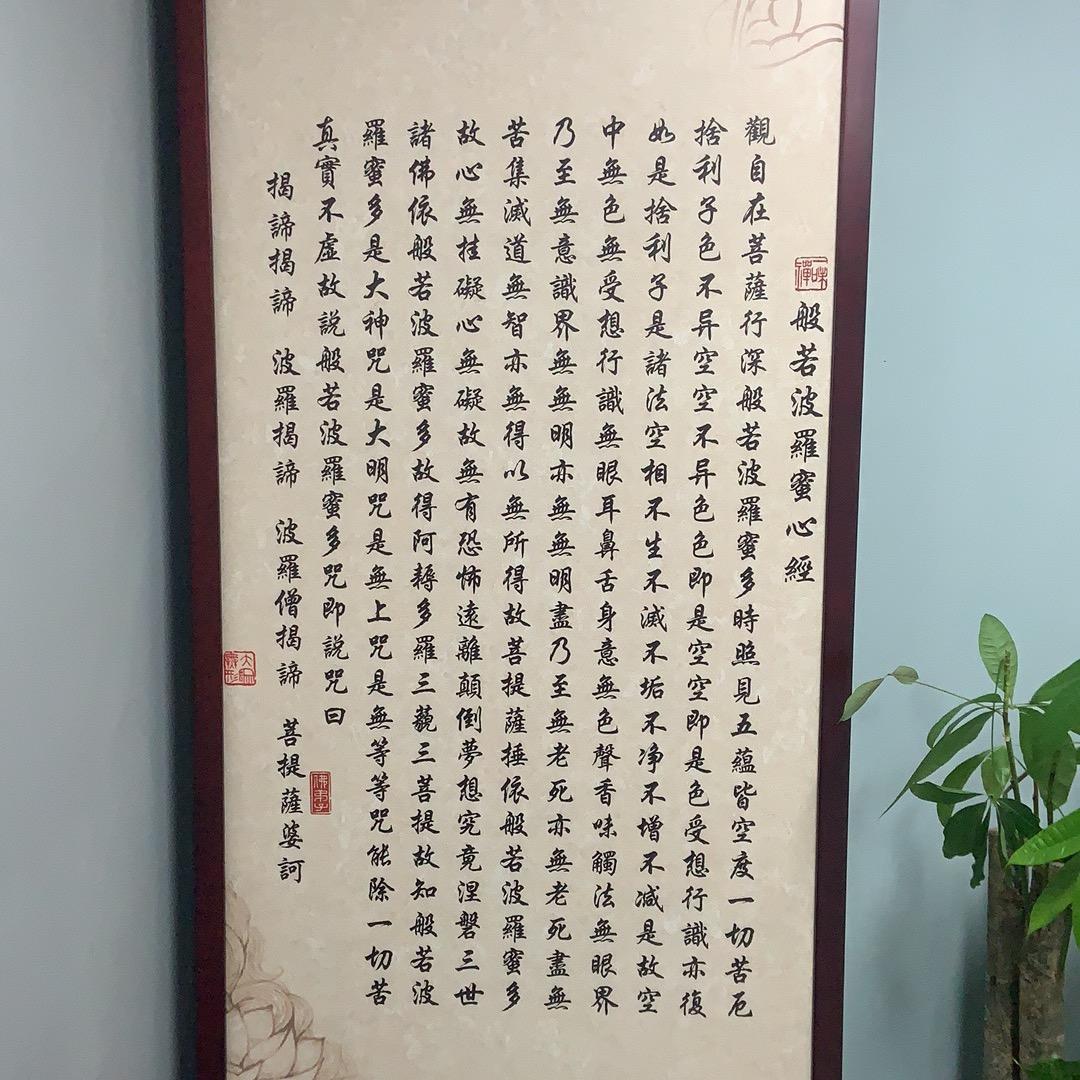 般若波羅蜜心經
觀自在菩薩行深般若波羅蜜多時照見五蘊皆空度一切苦厄
捨利子色不异空空不异色色即是空空即是色受想行識亦復
如是捨利子是諸法空相不生不滅不垢不净不增不减是故空
中無色無受想行識無眼耳鼻舌身意無色聲香味觸法無眼界
乃至無意識界無無明亦無無明盡乃至無老死亦無老死盡無
苦集滅道無智亦無得以無所得故菩提薩捶依般若波羅蜜多
故心無挂礙心無礙故無有恐怖遠離顛倒夢想究竟涅磐三世
諸佛依般若波羅蜜多故得阿耨多羅三藐三菩提故知般若波
羅蜜多是大神咒是大明咒是無上咒是無等等咒能除一切苦
真實不虛故説般若波羅蜜多咒即説咒曰
揭諦揭諦 波羅揭諦 波羅僧揭諦 菩提薩婆訶
佛弟子